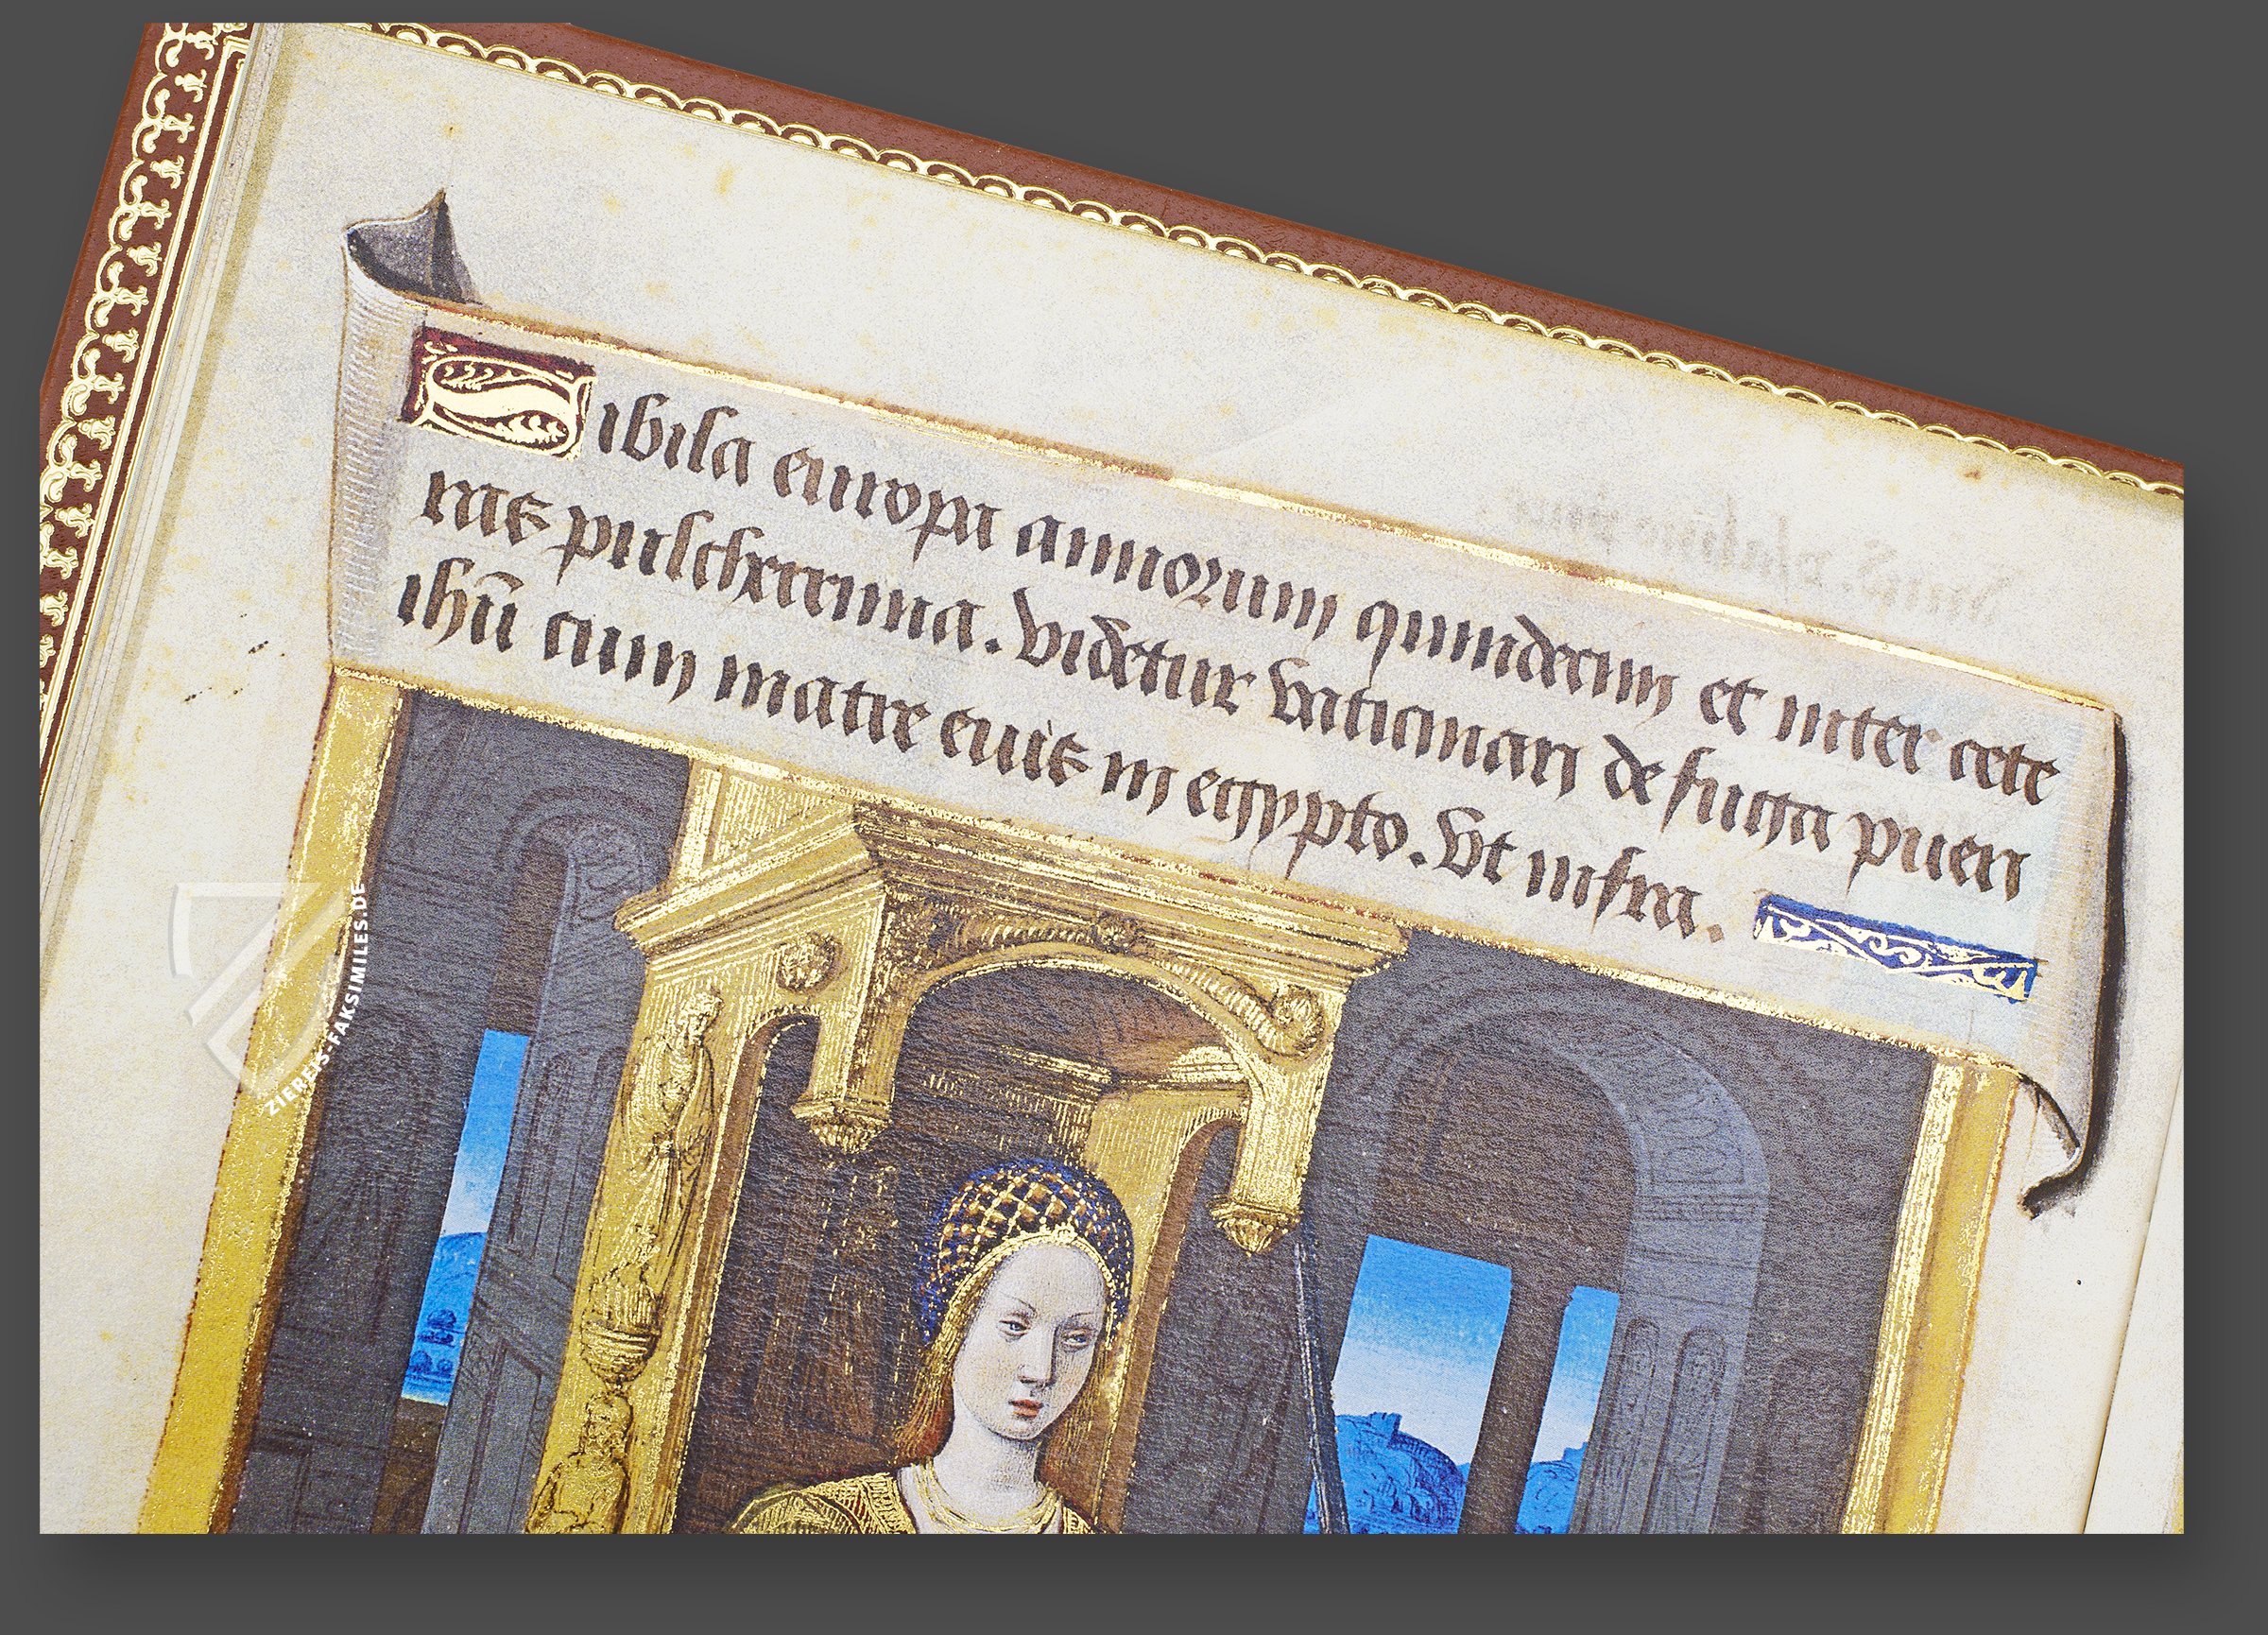 Sibila europa annorum quindecim et inter cete
ras pulcherrima. Videtur vaticinari de fuga pueri
ihū cum matre eius in egypto. Vt infra.
ZIERES-FAKSIMILES.DE